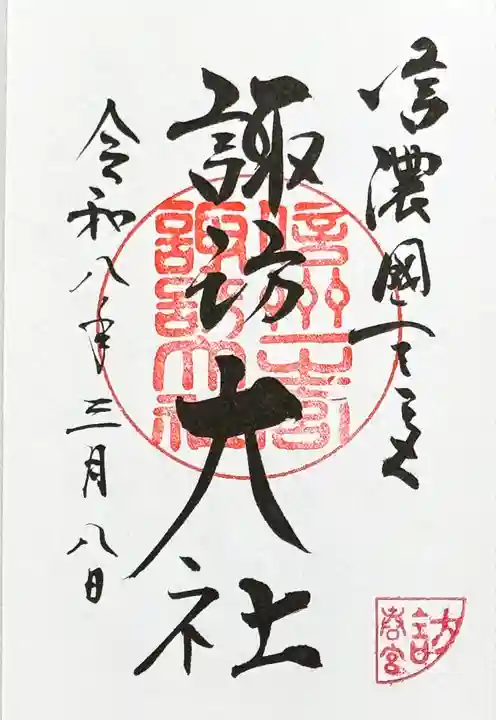 信濃國一之宮
諏訪大社
令和八年三月八日
諏訪大社
春宮